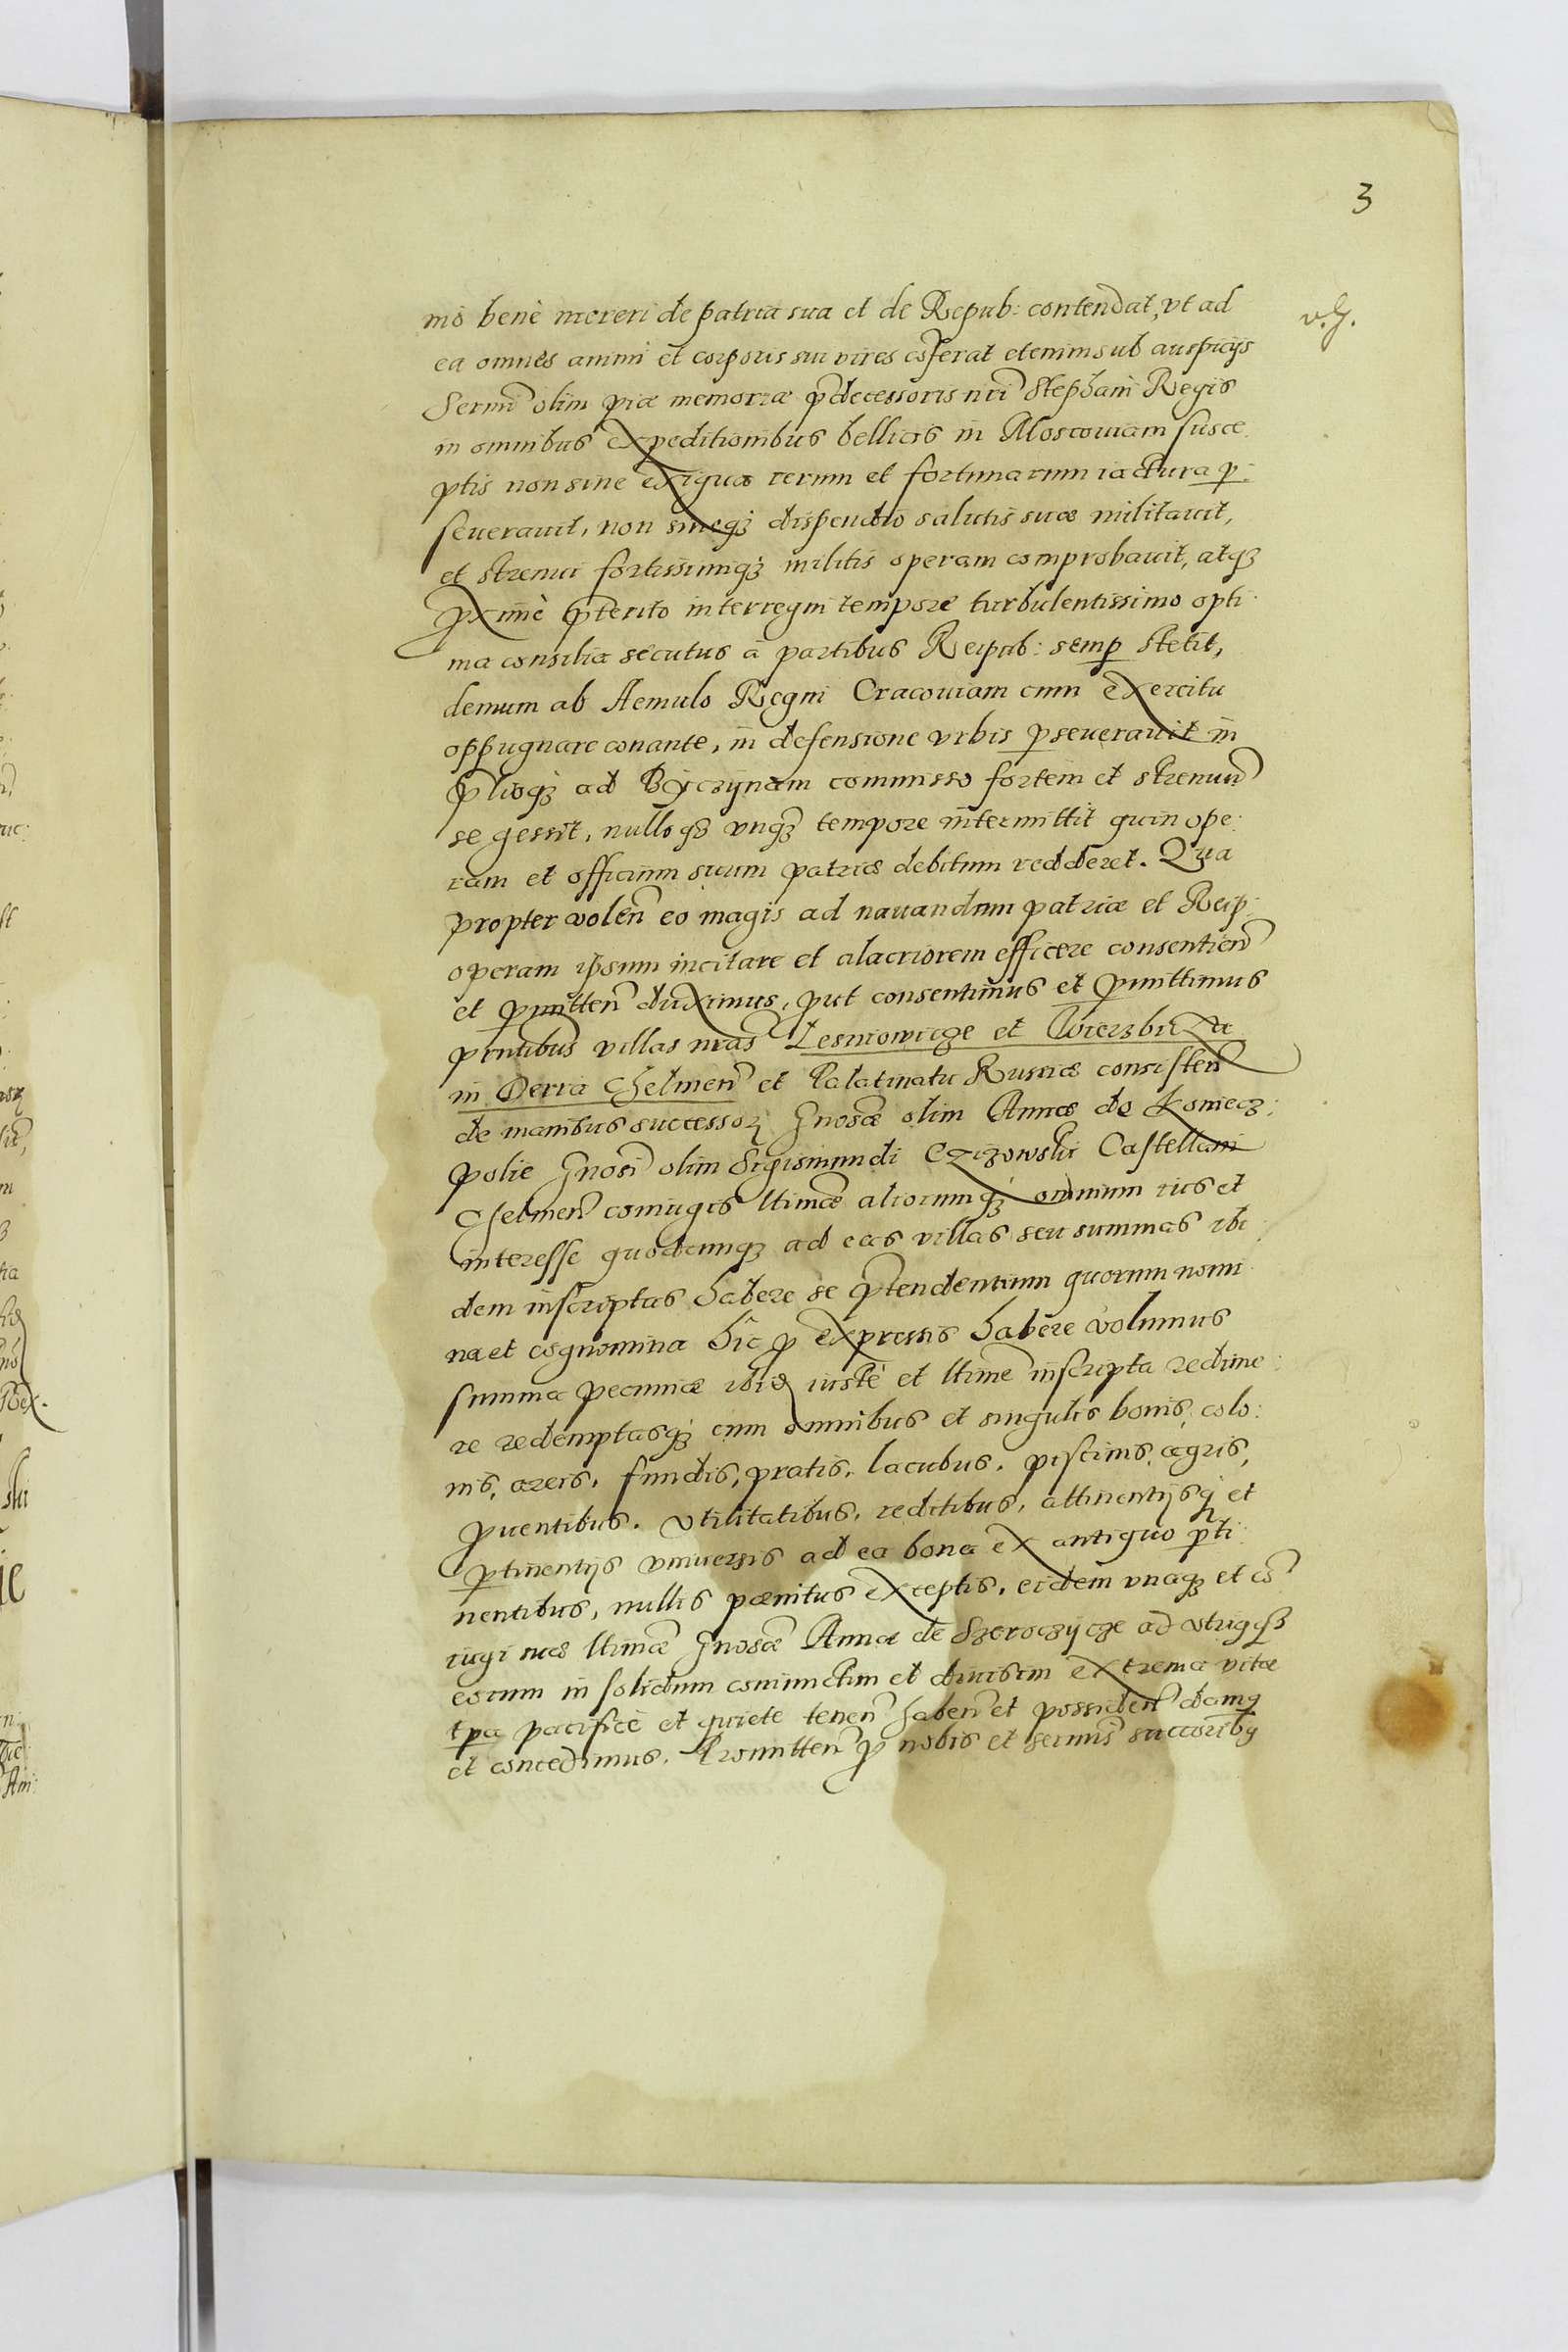 3
mo benè mereri de patria sua et de Repub: contendat, vt ad
v. G.
ea omnes animi et corporis sui vires cõferat etenim sub auspicijs
Sermi olim piæ memoriæ p̃decessoris nri Stephani Regis
in omnibus expeditionibus bellicis in Moscouiam susce
ptis non sine exigua rerum et fortunarum iactura p:
seuerauit, non sineq; dispendio salutis suæ militauit,
et strenui fortissimiq; militis operam comprobauit, atq;
pximè p̃terito interregni tempore turbulentissimo opti
ma consilia secutus à partibus Reipub: semp stetit,
demum ab Aemulo Regni Cracouiam cum exercitu
oppugnare conante, in defensione vrbis pseuerauit in
p̃lioq; ad Byczynam commisso fortem et strenuũ
se gessit, nullo q3 vnq; tempore intermittit quin ope:
ram et officium suum patriæ debitum redderet. Qua
propter voleñ eo magis ad nauandum patriæ et Reip:
operam ipsum incitare et alacriorem efficere consentieñ
et pmitteñ duximus, put consentimus et pmittimus
pñtibus villas nras Lesniowicze et Wierzbicza
in Terra Chelmeñ et Palatinatu Russiæ consisteñ
de manibus successoꝝ Gnosæ olim Annæ de Koniecz:
polie Gnosi olim Sigismundi Czizowski Castellani
Chelmeñ coniugis ltimæ aliorumq; omnium ius et
interesse quodcunq; ad eas villas seu summas ibi
dem inscriptas habere se p̃tendentium quorum nomi
na et cognomina hîc p expressis habere volumus
summa pecuniæ ibid iustè et ltime inscripta redime:
re redemptasq; cum omnibus et singulis bonis, colo:
nis, areis, fundis, pratis, lacubus, piscinis, agris,
puentibus, vtilitatibus, reditibus, attinentijsq; et
ptinentijs vniuersis ad ea bona ex antiquo pti
nentibus, nullis pœnitus exceptis, eidem vnaq; et cõ
iugi suæ ltimæ Gnosæ Annæ de Szeroczycze ad vtriq3
eorum in solidum coniunctim et diuisim extrema vitæ
tpa pacificè et quiete teneñ habeñ et possideñ damq
et concedimus. Promitteñ p nobis et sermis succoribq